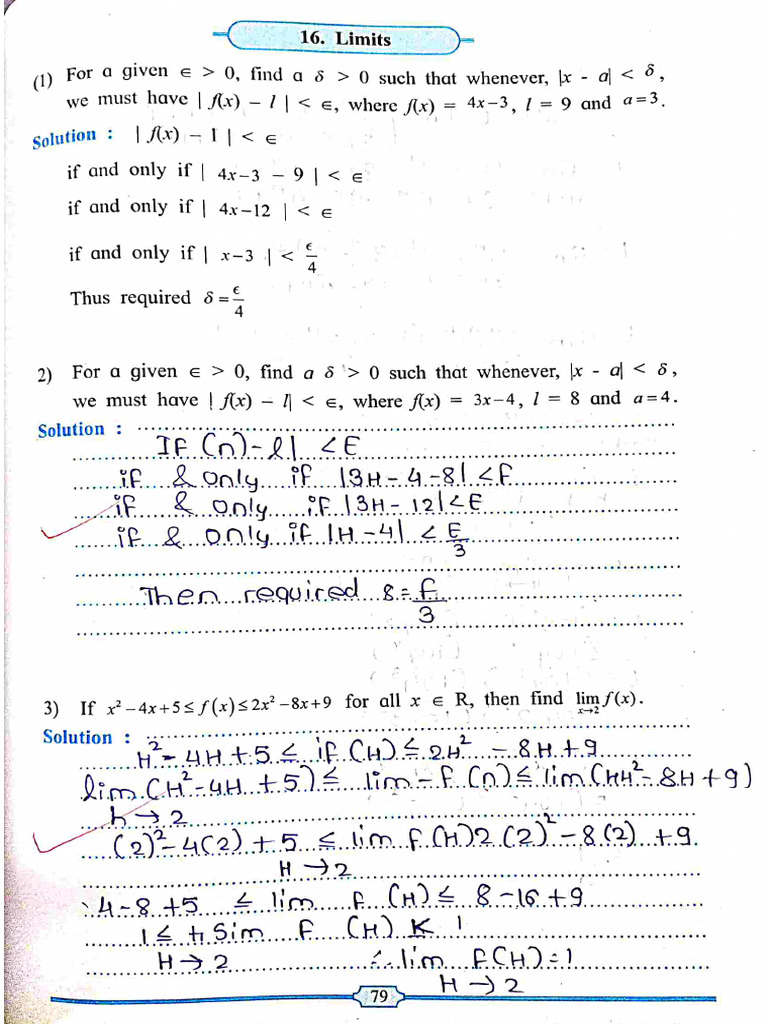 16. Limits
(1) For a given ∈ > 0, find a δ > 0 such that whenever, |x - a| < δ,
we must have | f(x) – l | < ∈, where f(x) = 4x–3, l = 9 and a=3.
Solution : | f(x) – l | < ∈
if and only if | 4x–3 – 9 | < ∈
if and only if | 4x–12 | < ∈
if and only if | x–3 | < ϵ/4
Thus required δ = ϵ/4
2) For a given ∈ > 0, find a δ > 0 such that whenever, |x - a| < δ,
we must have | f(x) – l| < ∈, where f(x) = 3x–4, l = 8 and a=4.
Solution :
If (n)-l| < E
if & only if |3H-4-8| < f
if & only if |3H-12| < E
if & only if |H-4| < E/3
Then required 8 = f/3
3) If x²–4x+5 ≤ f(x) ≤ 2x²–8x+9 for all x ∈ R, then find lim x→2 f(x).
Solution :
H²-4H+5 ≤ if (H) ≤ 2H² - 8H+9
lim (H²-4H+5) ≤ lim - f (n) ≤ lim (HH²-8H+9)
h→2
(2)²-4(2)+5 ≤ lim f(H) 2 (2)²-8(2) +9
H→2
4-8+5 ≤ lim f (H) ≤ 8-16+9
1 ≤ + Sim f (H) K 1
H→2 ∴ lim f(H)=1
H→2
79